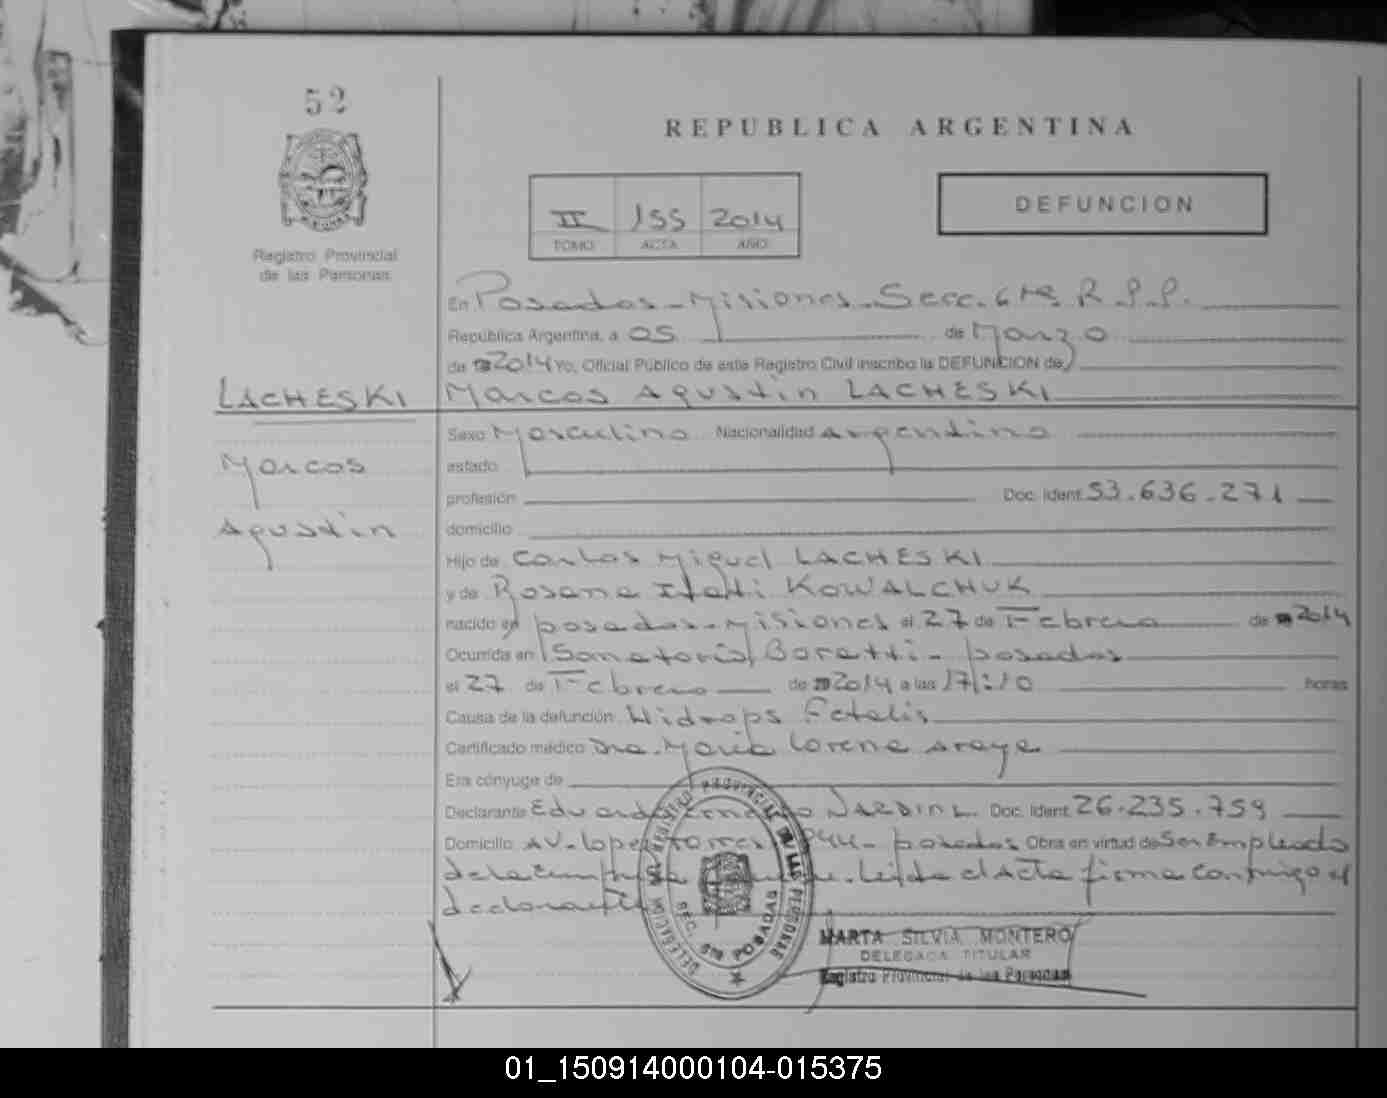 52
REPUBLICA ARGENTINA
DEFUNCION
II 155 2014
TOMO ACTA AÑO
Registro Provincial
de las Personas
En Posadas - Misiones - Secc. 6ta. R.P.P.
República Argentina, a 05 de Marzo
de 2014 Yo, Oficial Público de este Registro Civil inscribo la DEFUNCION de
LACHESKI Marcos Agustin LACHESKI
Sexo Masculino Nacionalidad Argentino
Marcos estado
profesión Doc. Ident. 53.636.271
Agustin domicilio
Hijo de Carlos Miguel LACHESKI
y de Rosana Itati KOWALCHUK
nacido en posadas - Misiones el 27 de Febrero de 2014
Ocurrida en Sanatorio Boratti - posadas
el 27 de Febrero de 2014 a las 17:10 horas
Causa de la defunción Hidrops Fetalis
Certificado médico Dra. Maria Lorena Araya
Era cónyuge de
Declarante Eduardo NARDINI. Doc. Ident. 26.235.759
Domicilio AV. Lopez Torres - posadas Obra en virtud de Ser Empleado
de la Leida el Acta firma conmigo el
declarante
DELEGACION DEL REGISTRO PROVINCIAL DE LAS PERSONAS
SEC. 6ta POSADAS
MARTA SILVIA MONTERO
DELEGADA TITULAR
Registro Provincial de las Personas
01_150914000104-015375